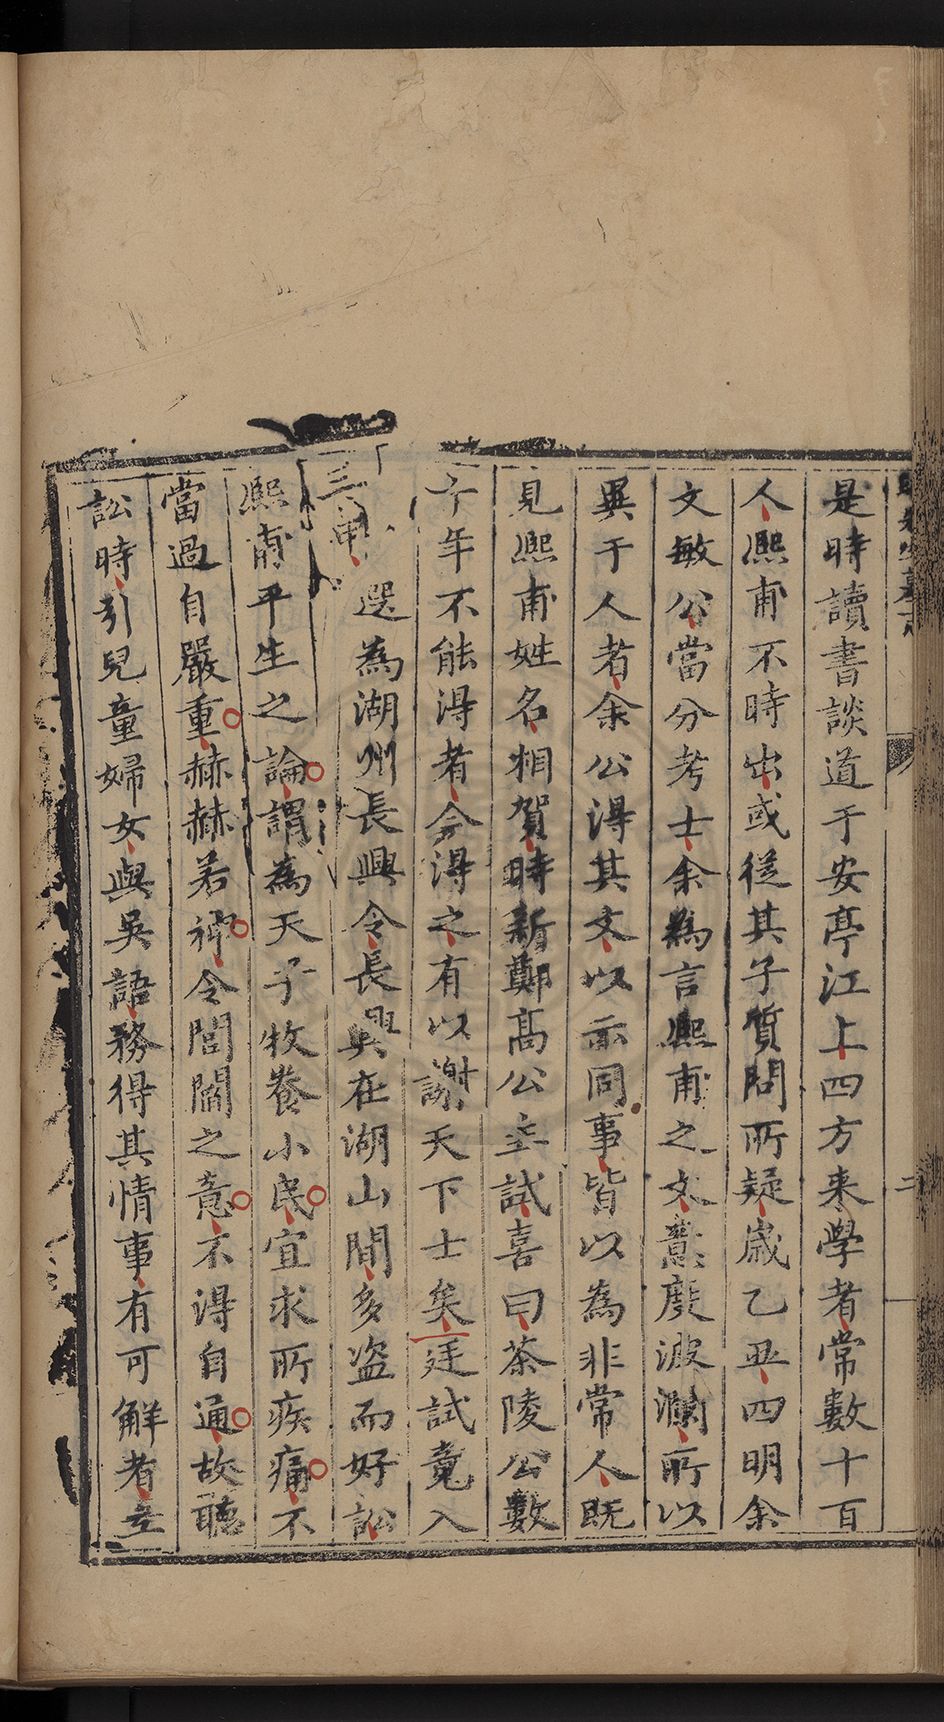 是時讀書談道于安亭江上四方來學者常數十百
人熙甫不時出或從其子質問所疑歲乙丑四明余
文敏公當分考士余為言熙甫之文意度波瀾所以
異于人者余公得其文以示同事皆以為非常人既
見熙甫姓名相賀時新鄭高公主試喜曰茶陵公數
十年不能得者今得之有以謝天下士矣廷試竟入
三甲選為湖州長興令長興在湖山間多盜而好訟
熙甫平生之論謂為天子牧養小民宜求所疾痛不
當過自嚴重赫赫若神令閭閻之意不得自通故聽
訟時引兒童婦女與吳語務得其情事有可解者立
二